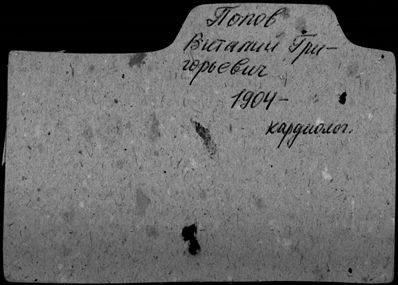 Попов
Виталий Гри-
горьевич
1904-
кардиолог.